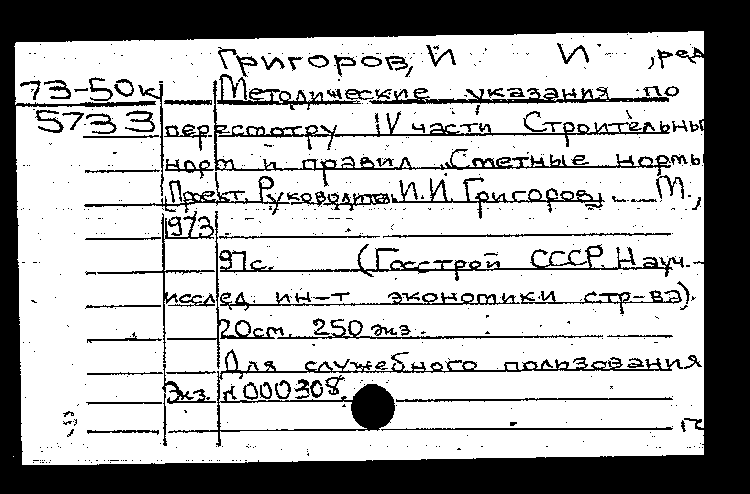 Григоров, И И , ред
73-50к Методические указания по
5733 пересмотру IV части Строительны
норм и правил „Сметные нормы
Проект. Руководитель И.И. Григоров. М.,
1973.
97с. (Госстрой СССР. Науч.-
исслед. ин-т экономики стр-ва).
20см. 250 экз.
Для служебного пользования
Экз. N 000308.